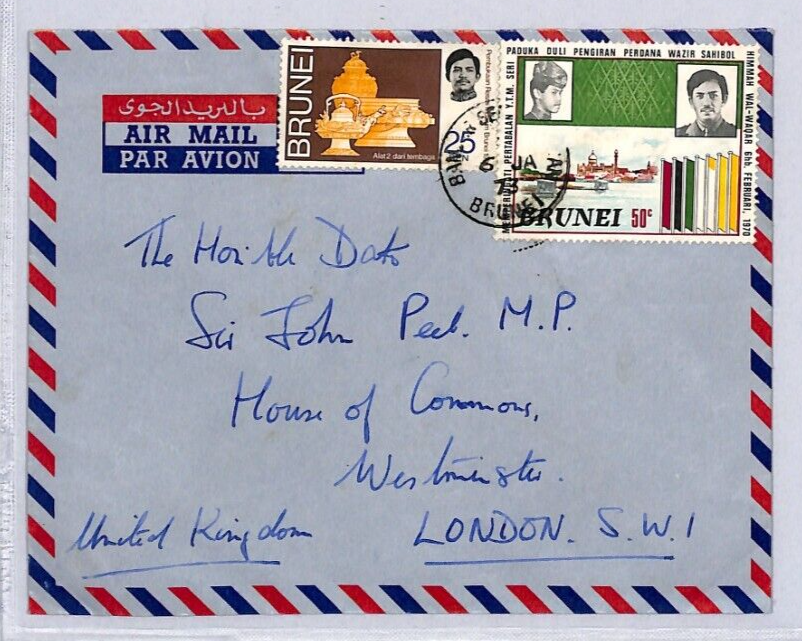 بالبريد الجوى
AIR MAIL
PAR AVION
BRUNEI
25
Alat2 dari tembaga
MEMPERINGATI PERTABALAN Y.T.M. SERI PADUKA DULI PENGIRAN PERDANA WAZIR SAHIBOL HIMMAH WAL-WAQAR 6hb FEBRUARI, 1970
BRUNEI 50c
6 JA
73
BRUNEI
The Hon'ble Dato
Sir John Peel. M.P.
House of Commons,
Westminster.
United Kingdom
LONDON. S.W.1